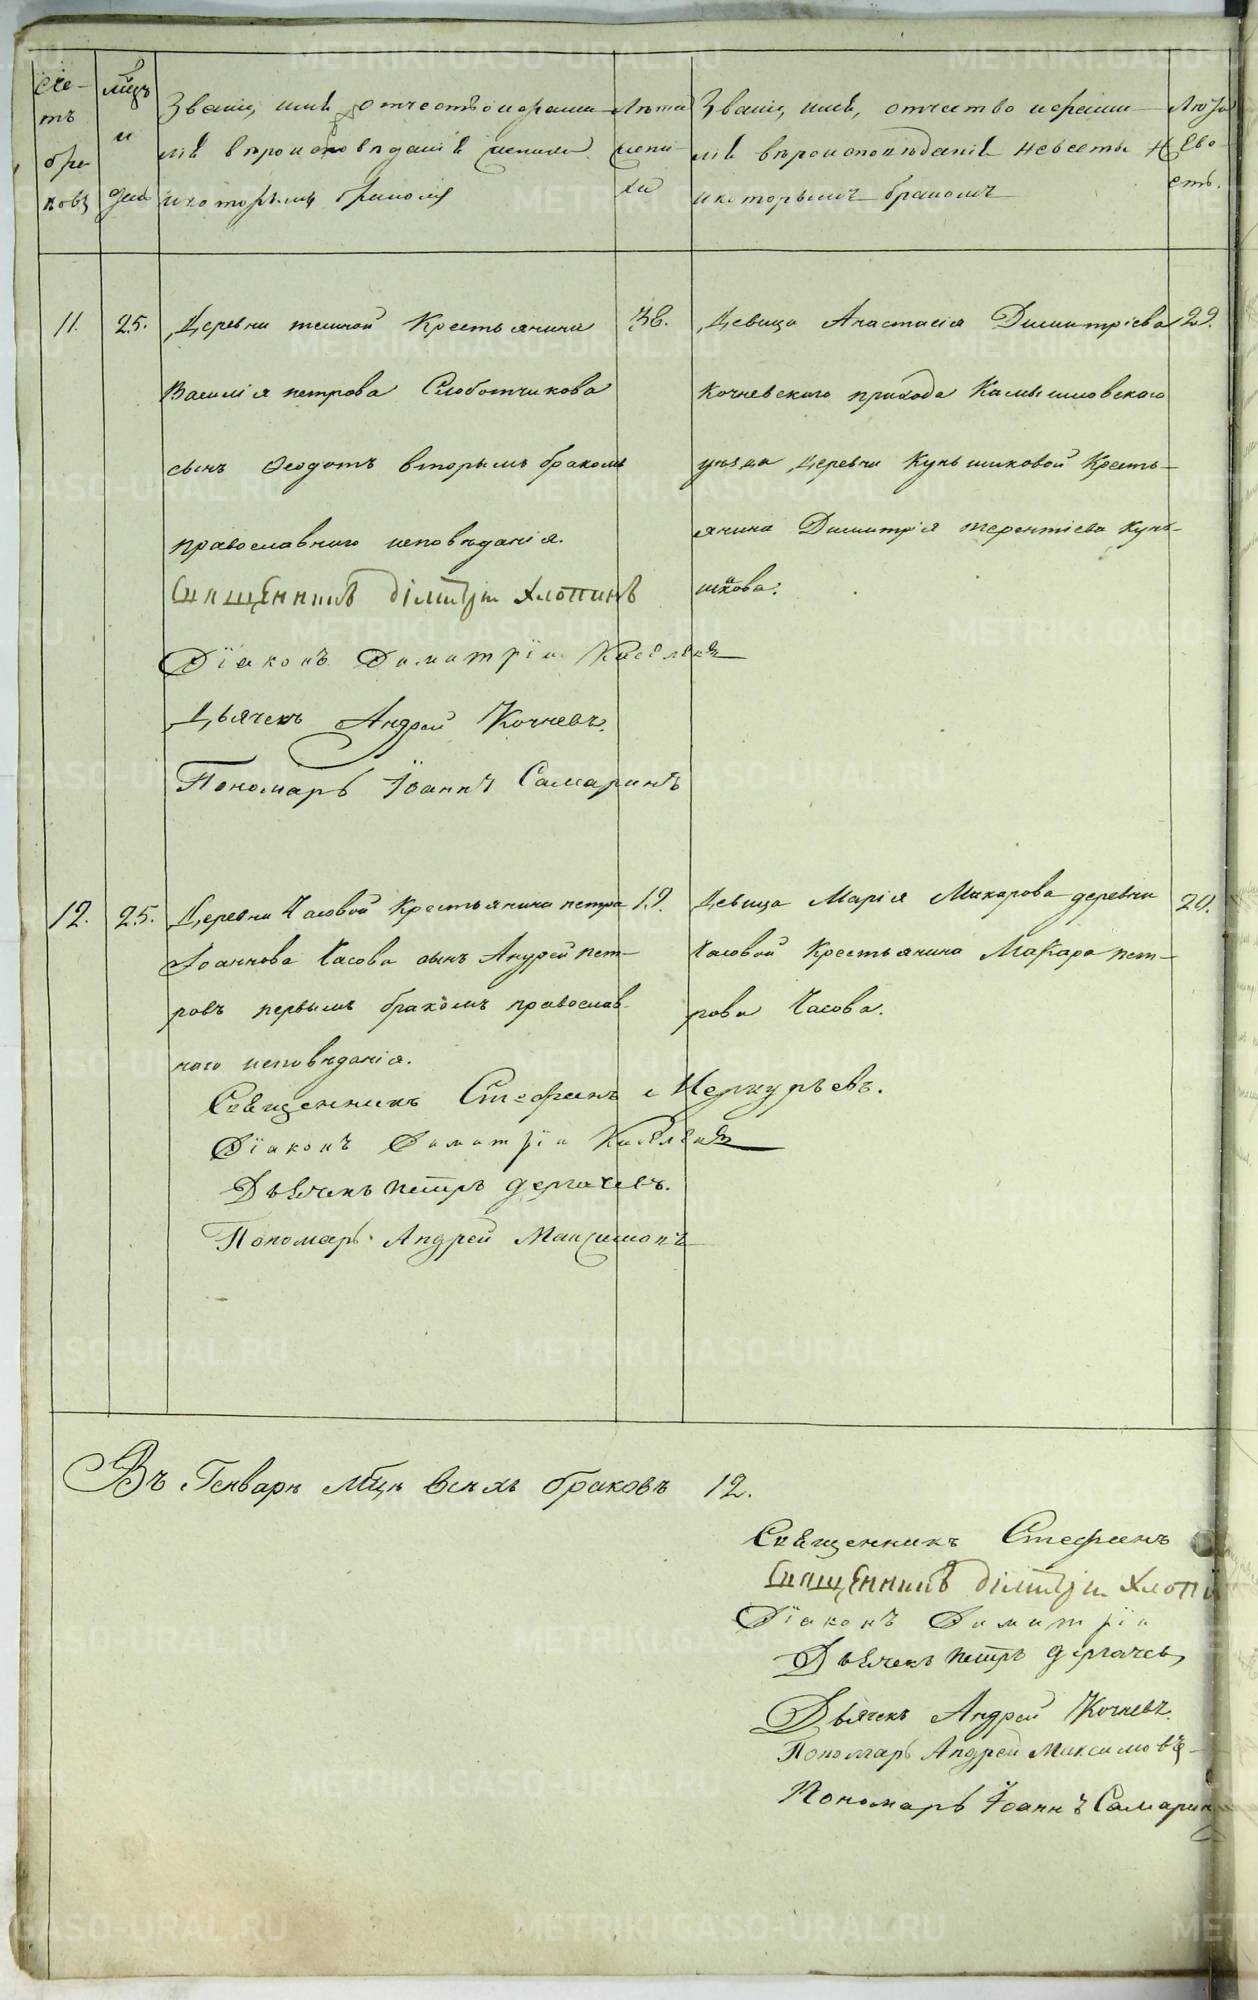 Сче-
тъ
бра
ковъ
мцъ
и
дни
Званіе, имя, отчество и фами
лія вероисповеданіе жениха
и которымъ бракомъ
Лѣта
жени
ха
Званіе, имя, отчество и фами
лія вѣроисповѣданіе невесты
и которымъ бракомъ
Лѣта
Неве-
сты.
11.
25.
Деревни Крестьянина
Василія петрова Слоботчикова
сынъ Ѳеодотъ вторымъ бракомъ
православнаго исповѣданія.
Священникъ Дімитрій Хлопинъ
Діаконъ Димитрій Киселевъ
Дьячекъ Андрей Кочневъ.
Пономарь Іоаннъ Самаринъ
36.
Девица Анастасія Димитріева
Кочневскаго прихода Камышловскаго
уѣзда деревни Куньшиковой Кресть-
янина Димитрія терентіева Кунь-
шикова.
29.
12.
25.
Деревни Часовой Крестьянина петра
Іоаннова Часова сынъ Андрей пет-
ровъ первымъ бракомъ православ
наго исповѣданія.
Священникъ Стефанъ Меркурьевъ.
Діаконъ Димитрій Киселевъ
Дьячекъ петръ дергачевъ.
Пономарь Андрей Максимовъ
19.
Девица Марія Макарова деревни
Часовой Крестьянина Макара пет-
рова Часова.
20.
Въ Генварѣ мцѣ всѣхъ браковъ 12.
Священникъ Стефанъ
Священникъ Дімитрій Хлопи
Діаконъ Димитрій
Дьячекъ петръ дергачевъ
Дьячекъ Андрей Кочневъ.
Пономарь Андрей Максимовъ
Пономарь Іоаннъ Самаринъ
METRIKI.GASO-URAL.RU